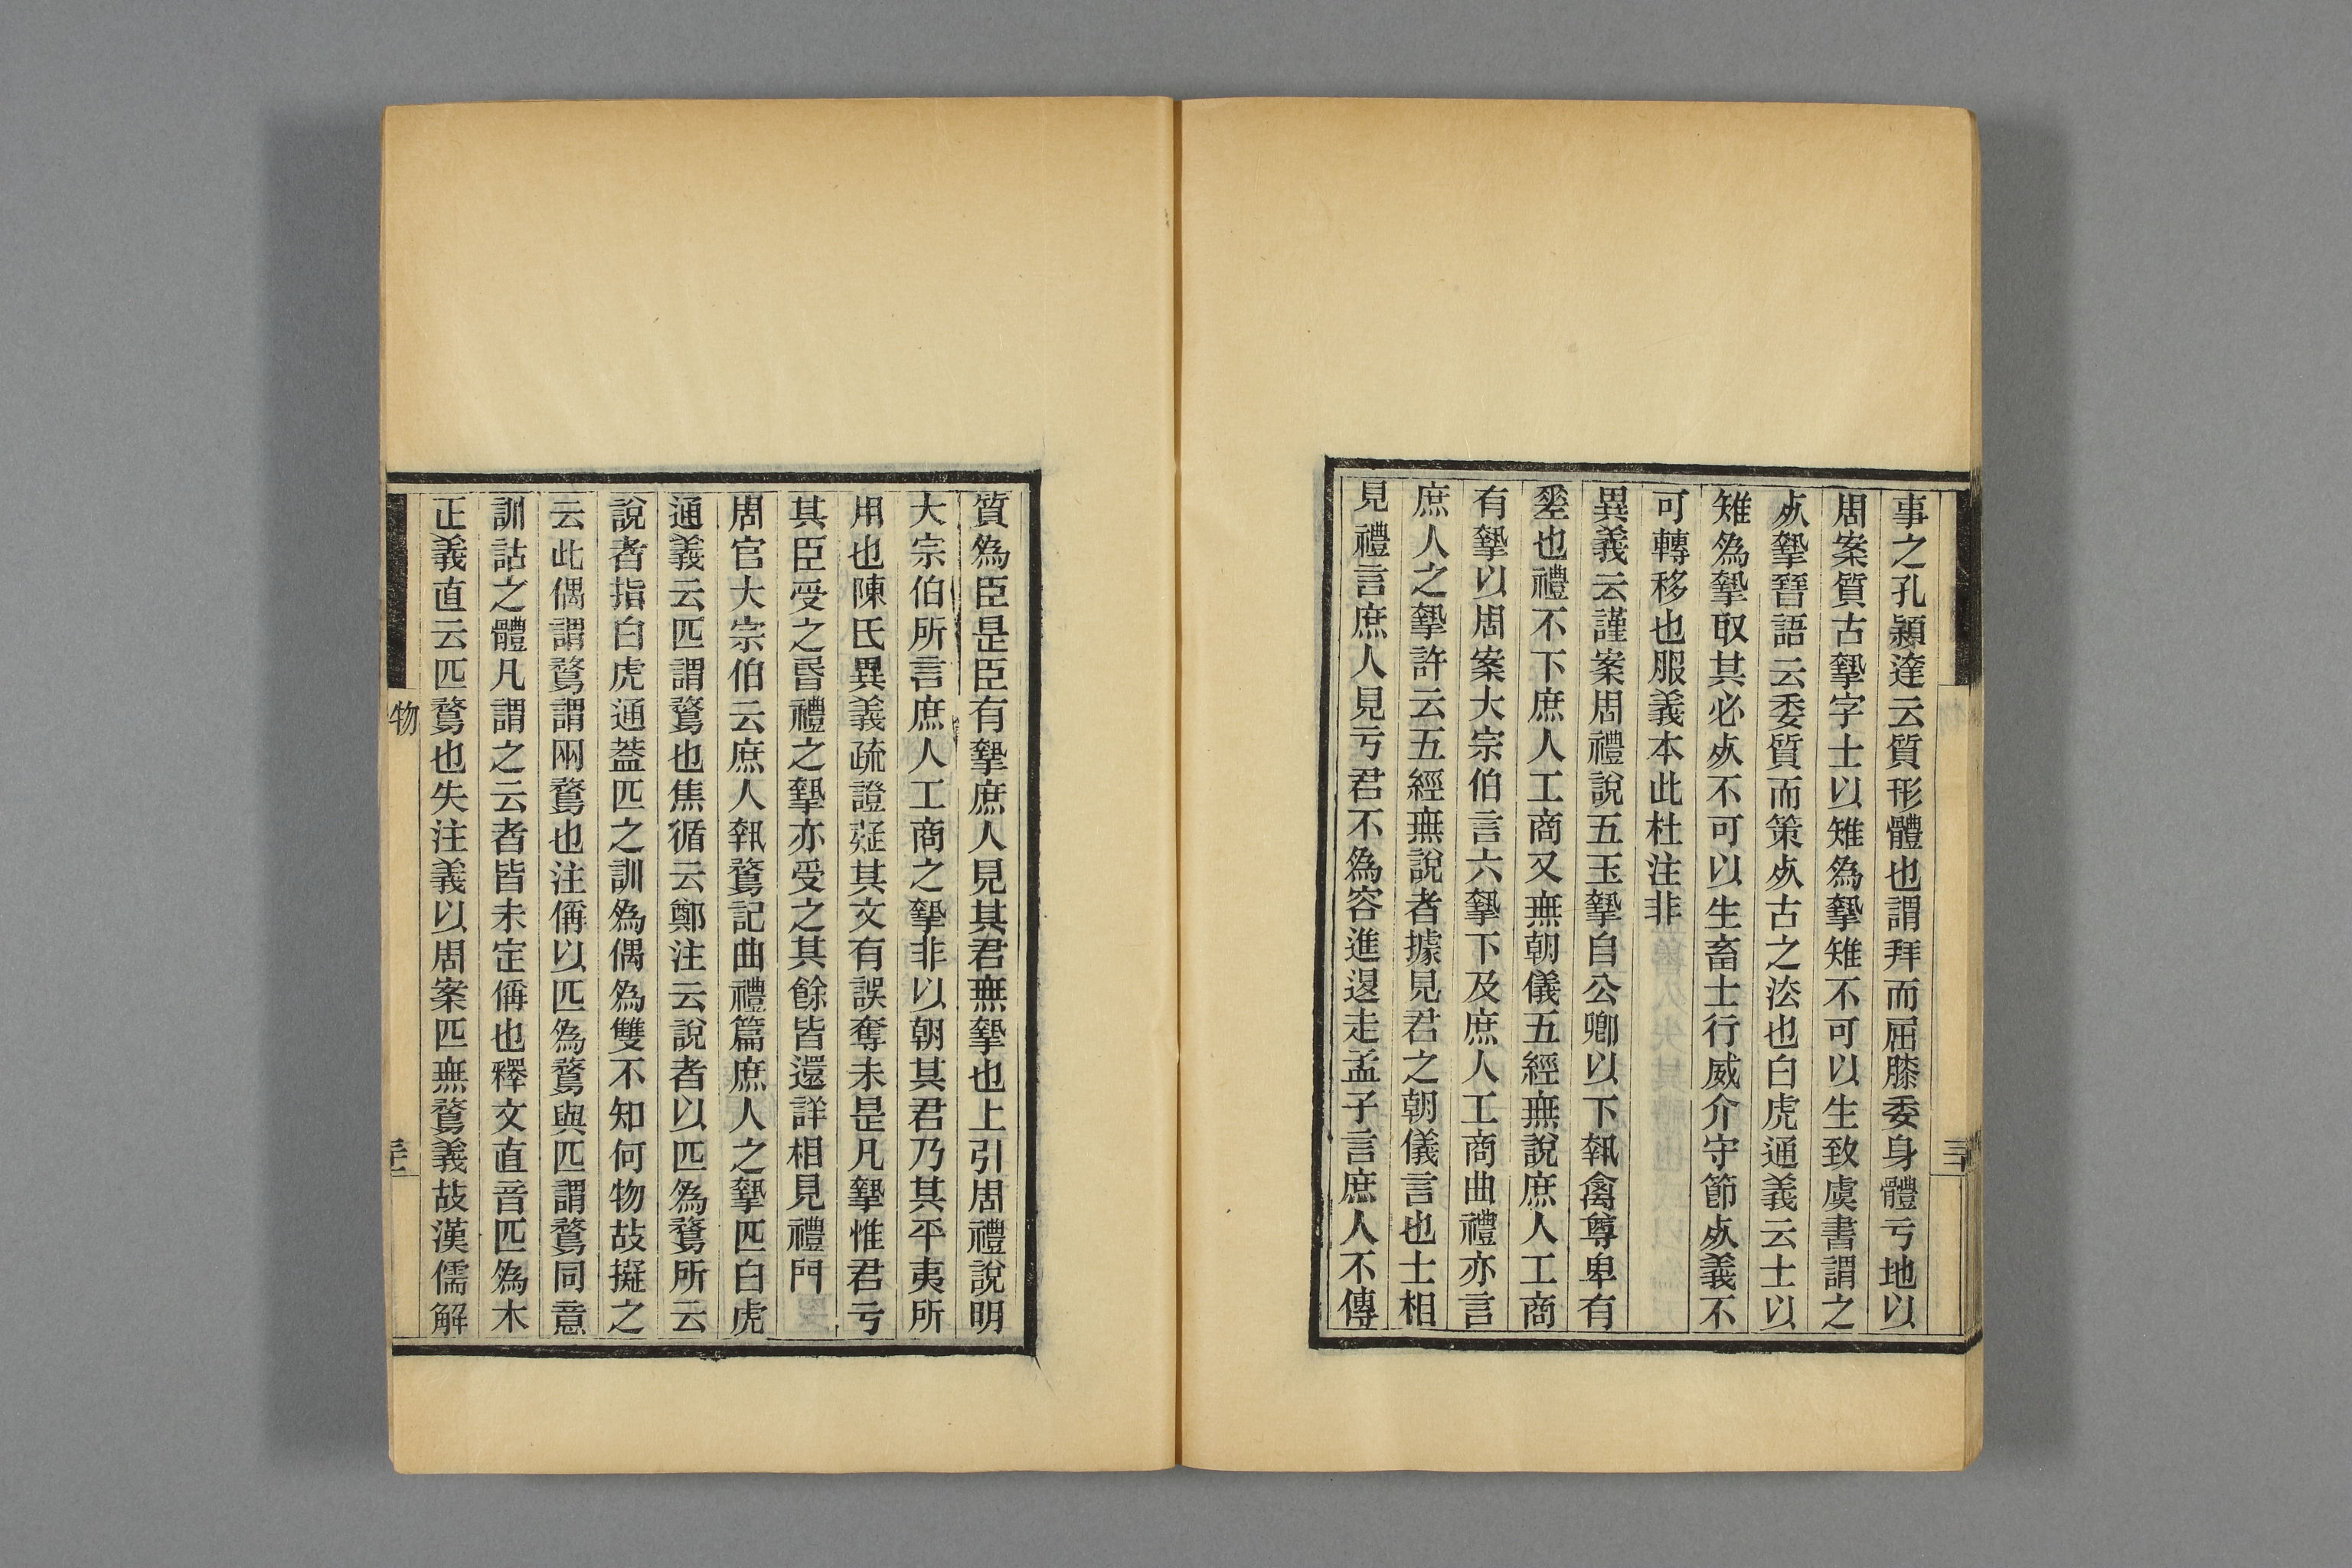 事之孔穎達云質形體也謂拜而屈膝委身體亏地以
周案質古摯字士以雉爲摯雉不可以生致虞書謂之
𣦸摯晉語云委質而策𣦸古之法也白虎通義云士以
雉爲摯取其必𣦸不可以生畜士行威介守節𣦸義不
可轉移也服義本此杜注非
異義云謹案周禮說五玉摯自公卿以下執禽尊卑有
差也禮不下庶人工商又無朝儀五經無說庶人工商
有摯以周案大宗伯言六摯下及庶人工商曲禮亦言
庶人之摯許云五經無說者據見君之朝儀言也士相
見禮言庶人見亏君不爲容進退走孟子言庶人不傳
三十
質爲臣是臣有摯庶人見其君無摯也上引周禮說明
大宗伯所言庶人工商之摯非以朝其君乃其平夷所
用也陳氏異義疏證疑其文有誤奪未是凡摯惟君亏
其臣受之昏禮之摯亦受之其餘皆還詳相見禮門
周官大宗伯云庶人執鶩記曲禮篇庶人之摯匹白虎
通義云匹謂鶩也焦循云鄭注云說者以匹爲鶩所云
說者指白虎通蓋匹之訓爲偶爲雙不知何物故擬之
云此偶謂鶩謂兩鶩也注偁以匹爲鶩與匹謂鶩同意
訓詁之體凡謂之云者皆未定偁也釋文直音匹爲木
正義直云匹鶩也失注義以周案匹無鶩義故漢儒解
物